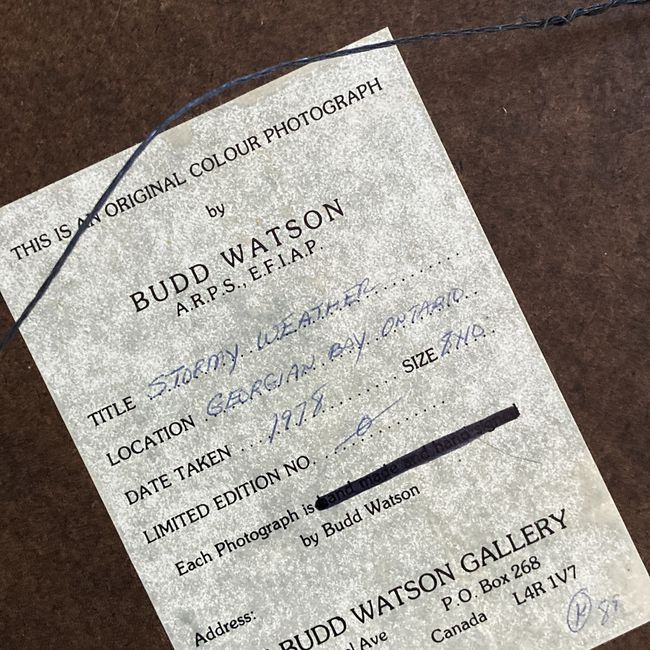 THIS IS AN ORIGINAL COLOUR PHOTOGRAPH
by
BUDD WATSON
A.R.P.S., E.F.I.A.P.
TITLE STORMY WEATHER
LOCATION GEORGIAN BAY ONTARIO
DATE TAKEN 1978 SIZE
LIMITED EDITION NO.
Each Photograph is hand made and hand signed
by Budd Watson
Address:
BUDD WATSON GALLERY
Ave P.O. Box 268
Canada L4R 1V7